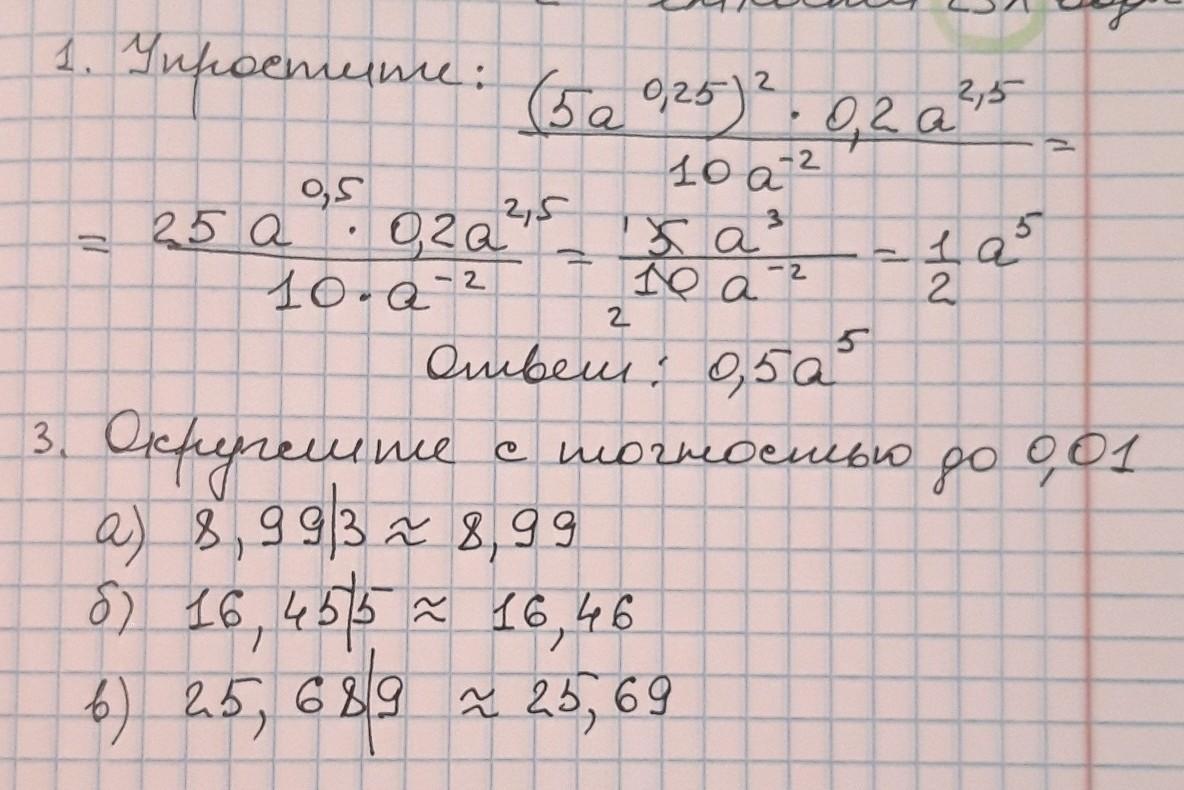 1. Упростите: (5a^0,25)^2 · 0,2a^2,5 / 10a^-2 =
= 25a^0,5 · 0,2a^2,5 / 10·a^-2 = 5a^3 / 10a^-2 = 1/2 a^5
Ответ: 0,5a^5
3. Округлите с точностью до 0,01
а) 8,99|3 ≈ 8,99
б) 16,45|5 ≈ 16,46
в) 25,68|9 ≈ 25,69